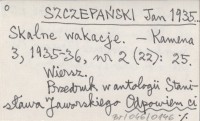 SZCZEPAŃSKI Jan 1935.
Skalne wakacje. – Kamena
3, 1935-36, nr 2 (22): 25.
Wiersz.
Przedruk w antologii Stani-
sława Jaworskiego Odpowiem ci